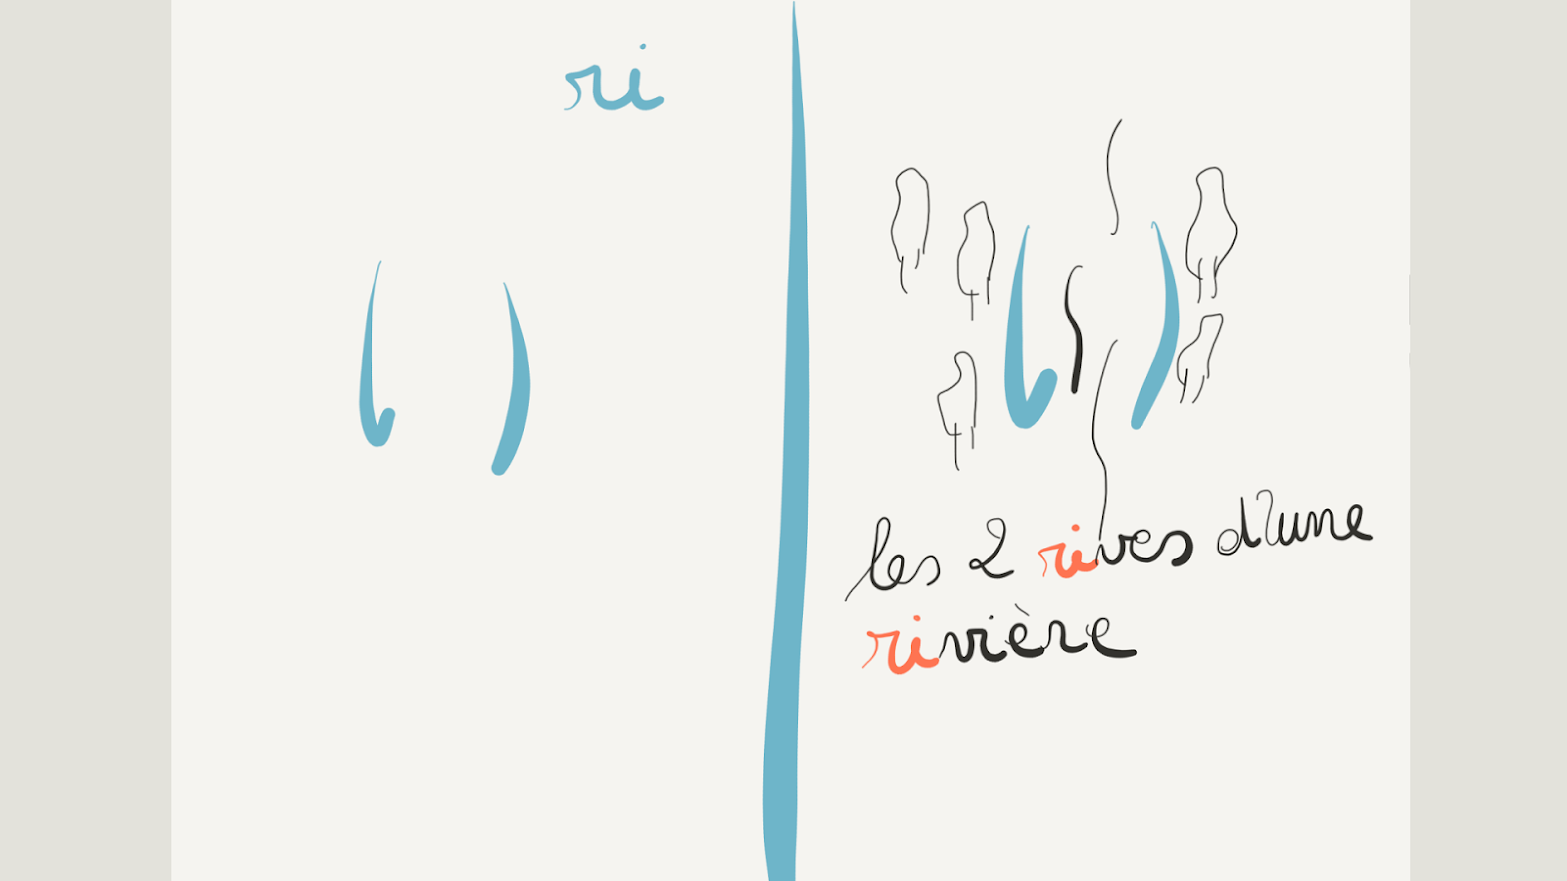 ri
り
り
les 2 rives d'une
rivière